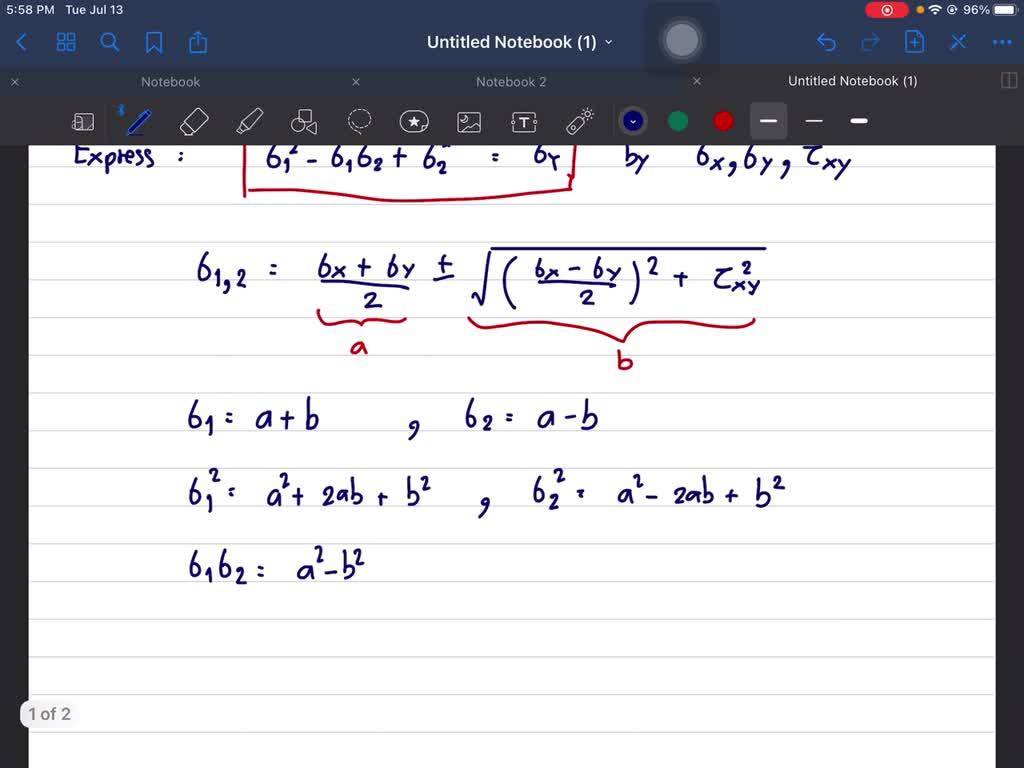 5:58 PM Tue Jul 13 96%
Untitled Notebook (1)
Notebook Notebook 2 Untitled Notebook (1)
Express : σ₁² - σ₁σ₂ + σ₂² = σY by σx, σy, τxy
σ₁,₂ = (σx + σy)/2 ± √(((σx - σy)/2)² + τ²xy)
a b
σ₁ = a + b , σ₂ = a - b
σ₁² = a² + 2ab + b² , σ₂² = a² - 2ab + b²
σ₁σ₂ = a² - b²
1 of 2